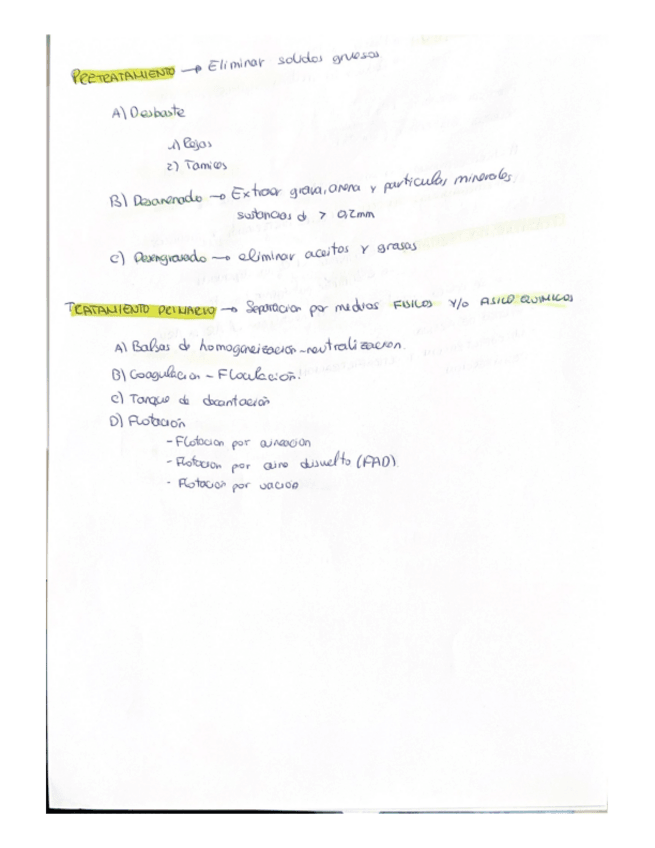 PRETRATAMIENTO → Eliminar solidos gruesos
A) Desbaste
1) Rejas
2) Tamices
B) Desarenado → Extraer grava, arena y particulas minerales
sustancias d > 0,2mm
C) Desengrasado → eliminar aceites y grasas
TRATAMIENTO PRIMARIO → Separacion por medios FISICOS Y/O FISICO QUIMICOS
A) Balsas de homogeneizacion - neutralizacion.
B) Coagulacion - Floculación.
C) Tanque de decantación
D) Flotación
- Flotacion por aireacion
- Flotacion por aire disuelto (FAD)
- Flotacion por vacion